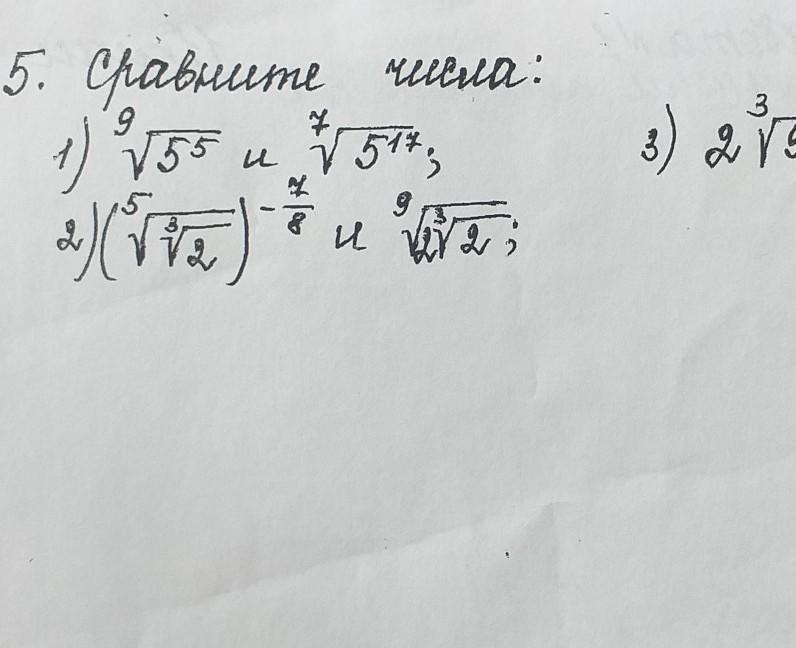 5. Сравните числа:
1) ⁹√5⁵ и ⁷√5¹⁷; 3) 2 ³√
2) (⁵√(³√2))^(-7/8) и ⁹√(2 ³√2);